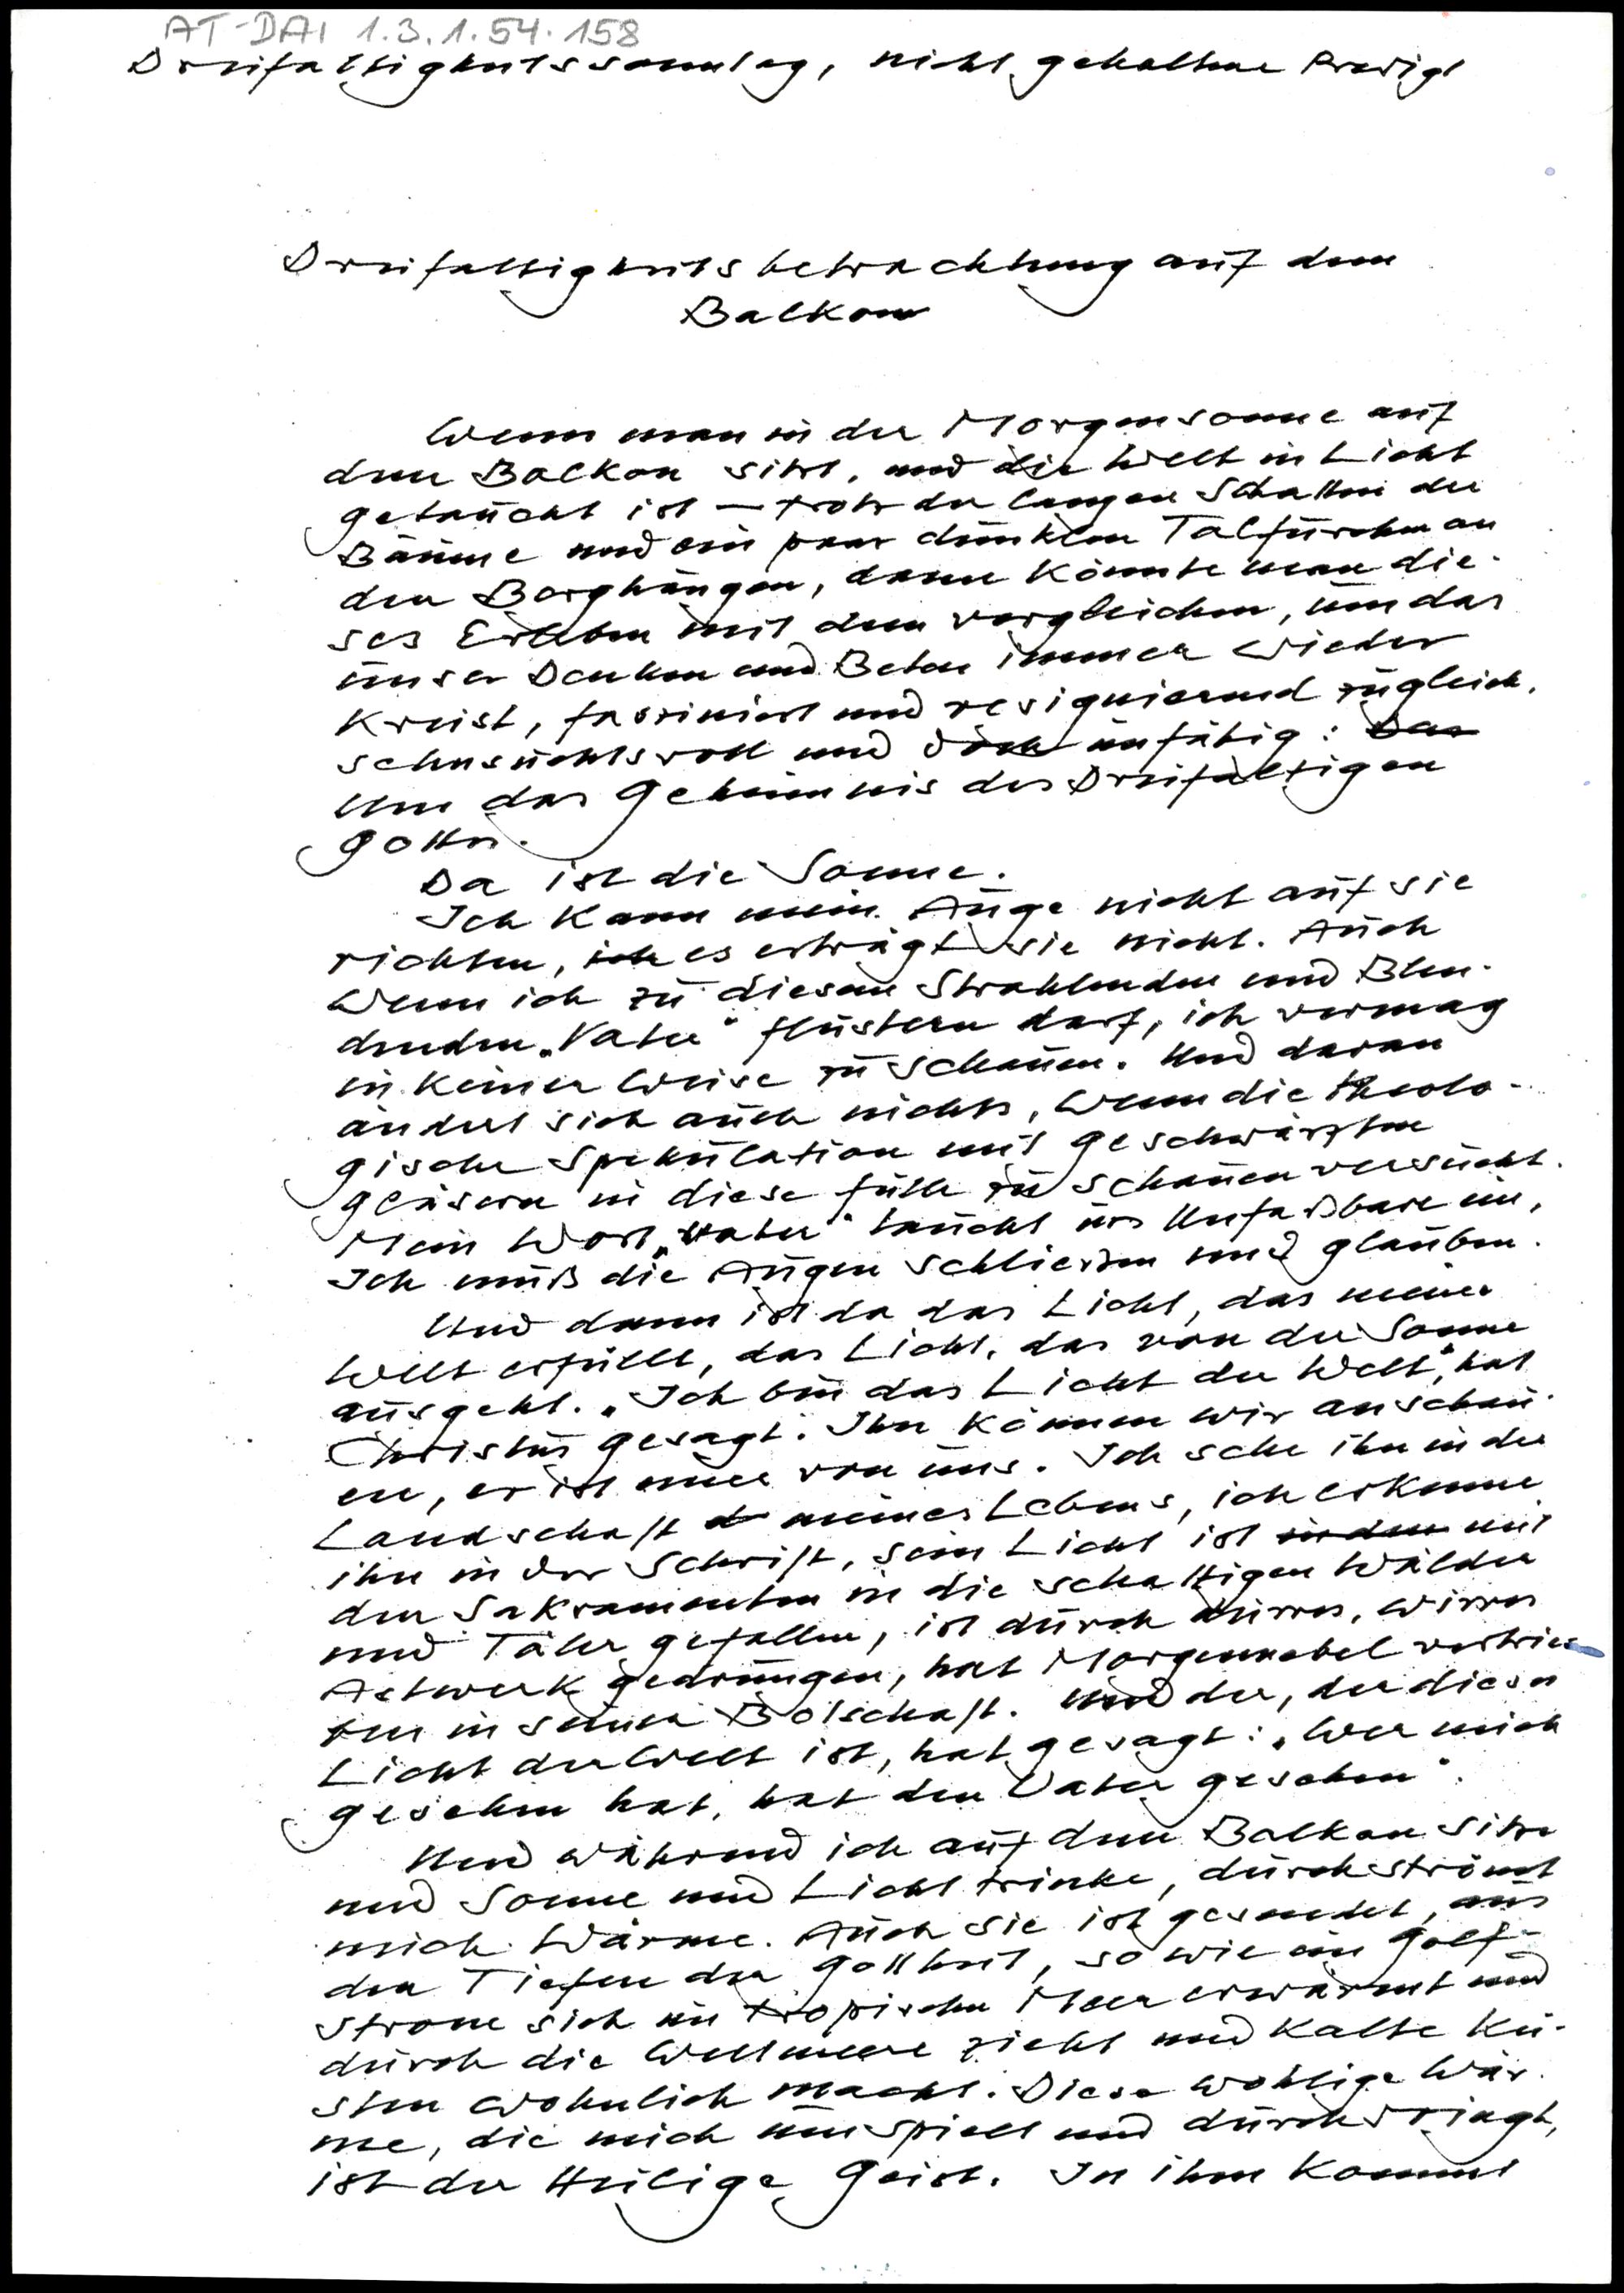 AT-DAI 1.3.1.54.158
Dreifaltigkeitssonntag, nicht gehaltene Predigt
Dreifaltigkeitsbetrachtung auf dem
Balkon
Wenn man in der Morgensonne auf
dem Balkon sitzt, und die Welt in Licht
getaucht ist – trotz der langen Schatten der
Bäume und ein paar dunklen Talfurchen an
den Berghängen, dann könnte man die-
ses Erleben mit dem vergleichen, um das
unser Denken und Beten immer wieder
kreist, fasziniert und resignierend zugleich,
sehnsuchtsvoll und doch unfähig: Das
Um das Geheimnis des Dreifaltigen
Gottes.
Da ist die Sonne.
Ich kann mein Auge nicht auf sie
richten, ich es erträgt sie nicht. Auch
wenn ich zu diesem Strahlenden und Blen-
denden „Vater" flüstern darf, ich vermag
in keiner Weise zu schauen. Und daran
ändert sich auch nichts, wenn die theolo-
gische Spekulation mit geschwärzten
Gläsern in diese Fülle zu schauen versucht.
Mein Wort „Vater" taucht ins Unfaßbare ein,
Ich muß die Augen schließen und glauben.
Und dann ist da das Licht, das meine
Welt erfüllt, das Licht, das von der Sonne
ausgeht. „Ich bin das Licht der Welt", hat
Christus gesagt. Ihn können wir anschau-
en, er ist einer von uns. Ich sehe ihn in der
Landschaft d meines Lebens, ich erkenne
ihn in der Schrift, sein Licht ist in den mit
den Sakramenten in die schattigen Wälder
und Täler gefallen, ist durch dürres, wirres
Astwerk gedrungen, hat Morgennebel vertrie-
ben in seiner Botschaft. Und der, der dieses
Licht der Welt ist, hat gesagt: „Wer mich
gesehen hat, hat den Vater gesehen".
Und während ich auf dem Balkon sitze
und Sonne und Licht trinke, durchströmt
mich Wärme. Auch sie ist gesendet, aus
den Tiefen der Gottheit, so wie ein Golf-
strom sich im tropischen Meer erwärmt und
durch die Weltmeere zieht und kalte Kü-
sten wohnlich macht. Diese wohlige Wär-
me, die mich umspielt und durchdringt,
ist der Heilige Geist. In ihm kommt